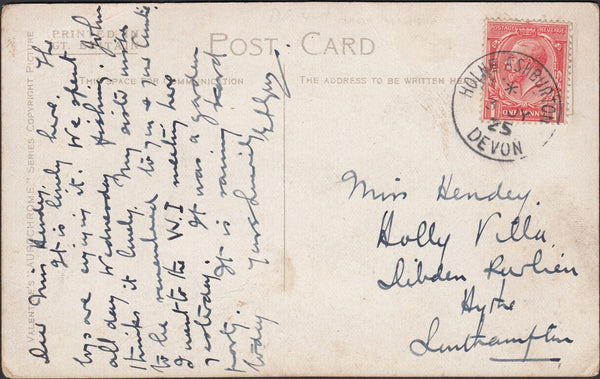 PRINTED IN
GT. BRITAIN
POST CARD
THIS SPACE FOR COMMUNICATION
THE ADDRESS TO BE WRITTEN HERE
VALENTINE'S "AUROCHROME" SERIES COPYRIGHT PICTURE
HOLNE ASHBURTON
25
DEVON
Dear Miss Hendey. The
boys are enjoying it. We spent
It is lovely here.
all day Wednesday fishing. John
thinks it lovely. My sister wishes
to be remembered to you &
I went to the W.I meeting here
yesterday. It was a garden
party. It is raining hard
today Yours sincerely
Miss Hendey.
Holly Villa
Dibden Purlieu
Hythe
Southampton